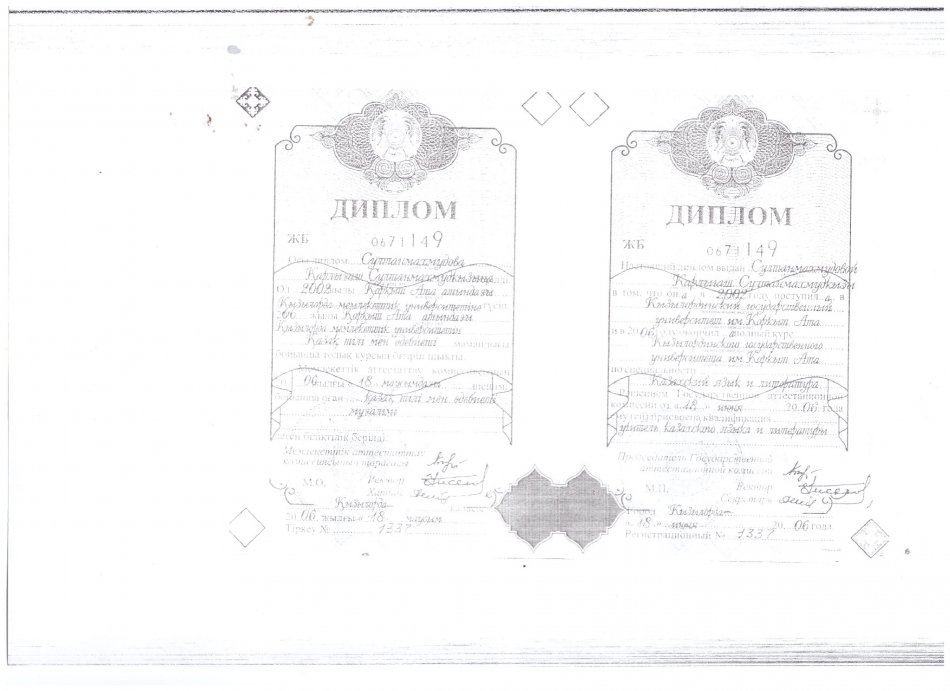 ДИПЛОМ
ЖБ 0671149
Осы диплом Султанмахмудова
Карлыгаш Султанмахмудкызына
Ол 2002 жылы Коркыт Ата атындагы
Кызылорда мемлекеттік университетіне
06 жылы Коркыт Ата атындагы
Кызылорда мемлекеттік университетін
Казак тілі мен әдебиеті мамандығы
бойынша толық курсын бітіріп шықты.
Мемлекеттік аттестаттау комиссиясының
06 жылғы 18 маусымдағы шешімі
казак тілі мен әдебиеті
мұғалімі
біліктілік берілді
Мемлекеттік аттестаттау
комиссиясының төрағасы
М.О. Ректор
Хатшы
Кызылорда
20 06 жылғы 18 маусым
Тіркеу № 1337
ДИПЛОМ
ЖБ 0671149
Настоящий диплом выдан Султанмахмудовой
Карлыгаш Султанмахмудкызы
в том, что он а в 2002 году поступил а в
Кызылординский государственный
университет им. Коркыт Ата
и в 2006 году окончил а полный курс
Кызылординского государственного
университета им. Коркыт Ата
по специальности
Казахский язык и литература
Решением Государственной аттестационной
комиссии от «18» июня 2006 года
присвоена квалификация
учитель казахского языка и литературы
Председатель Государственной
аттестационной комиссии
М.П. Ректор
Секретарь
Город Кызылорда
«18» июня 2006 года
Регистрационный № 1337